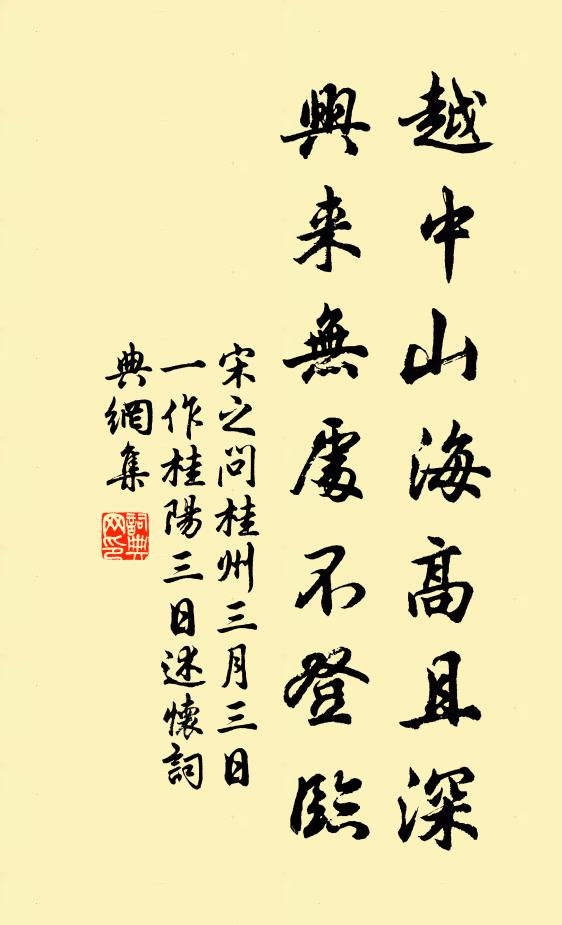 越中山海高且深
興来無處不登臨
宋之問桂州三月三日
一作桂陽三日述懷詞
典網集
詞典網印